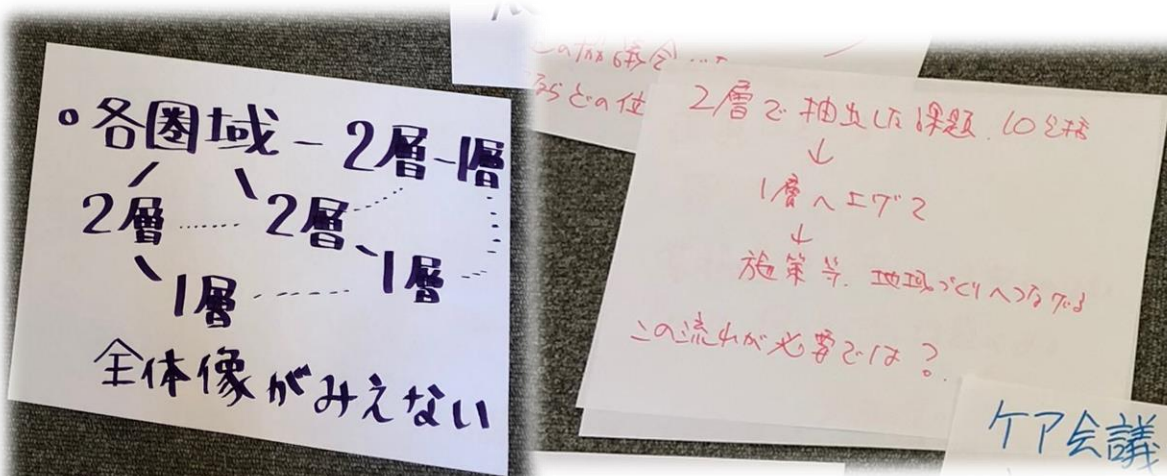 ・各圏域 - 2層 - 1層
2層 …… 2層
1層 …… 1層
全体像がみえない
の協議会…
らどの位
2層で抽出した課題、
↓
1層へ上げて
↓
施策等、地域づくりへつなげる
この流れが必要では?
ケア会議